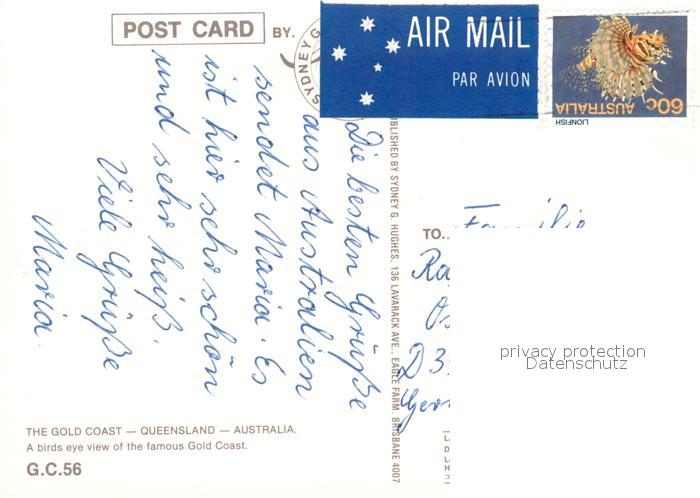 POST CARD BY.
SYDNEY G
AIR MAIL
PAR AVION
60c
AUSTRALIA
LIONFISH
Die besten Grüße
aus Australien
sendet Maria. Es
ist hier sehr schön
und sehr heiß.
Viele Grüße
Maria.
PUBLISHED BY SYDNEY G. HUGHES, 136 LAVARACK AVE., EAGLE FARM, BRISBANE 4007
TO..
Familie
Ra
Os
D 3
Ger
privacy protection
Datenschutz
THE GOLD COAST — QUEENSLAND — AUSTRALIA.
A birds eye view of the famous Gold Coast.
G.C.56